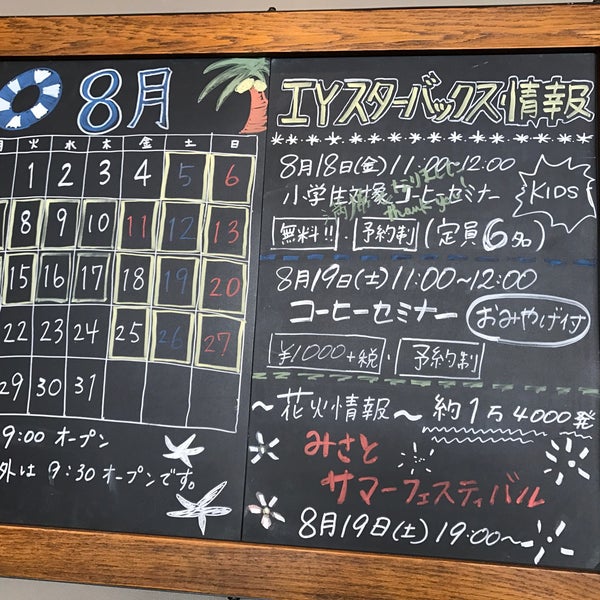 8月
火 水 木 金 土 日
1 2 3 4 5 6
8 9 10 11 12 13
15 16 17 18 19 20
22 23 24 25 26 27
29 30 31
9:00 オープン
外は 9:30オープンです。
IYスターバックス情報
8月18日(金)11:00~12:00
小学生対象コーヒーセミナー
KIDS
満席になりました
thank you!
無料!!・予約制(定員6名)
8月19日(土)11:00~12:00
コーヒーセミナー おみやげ付
¥1000+税・予約制
~花火情報~ 約1万4000発
みさと
サマーフェスティバル
8月19日(土)19:00~